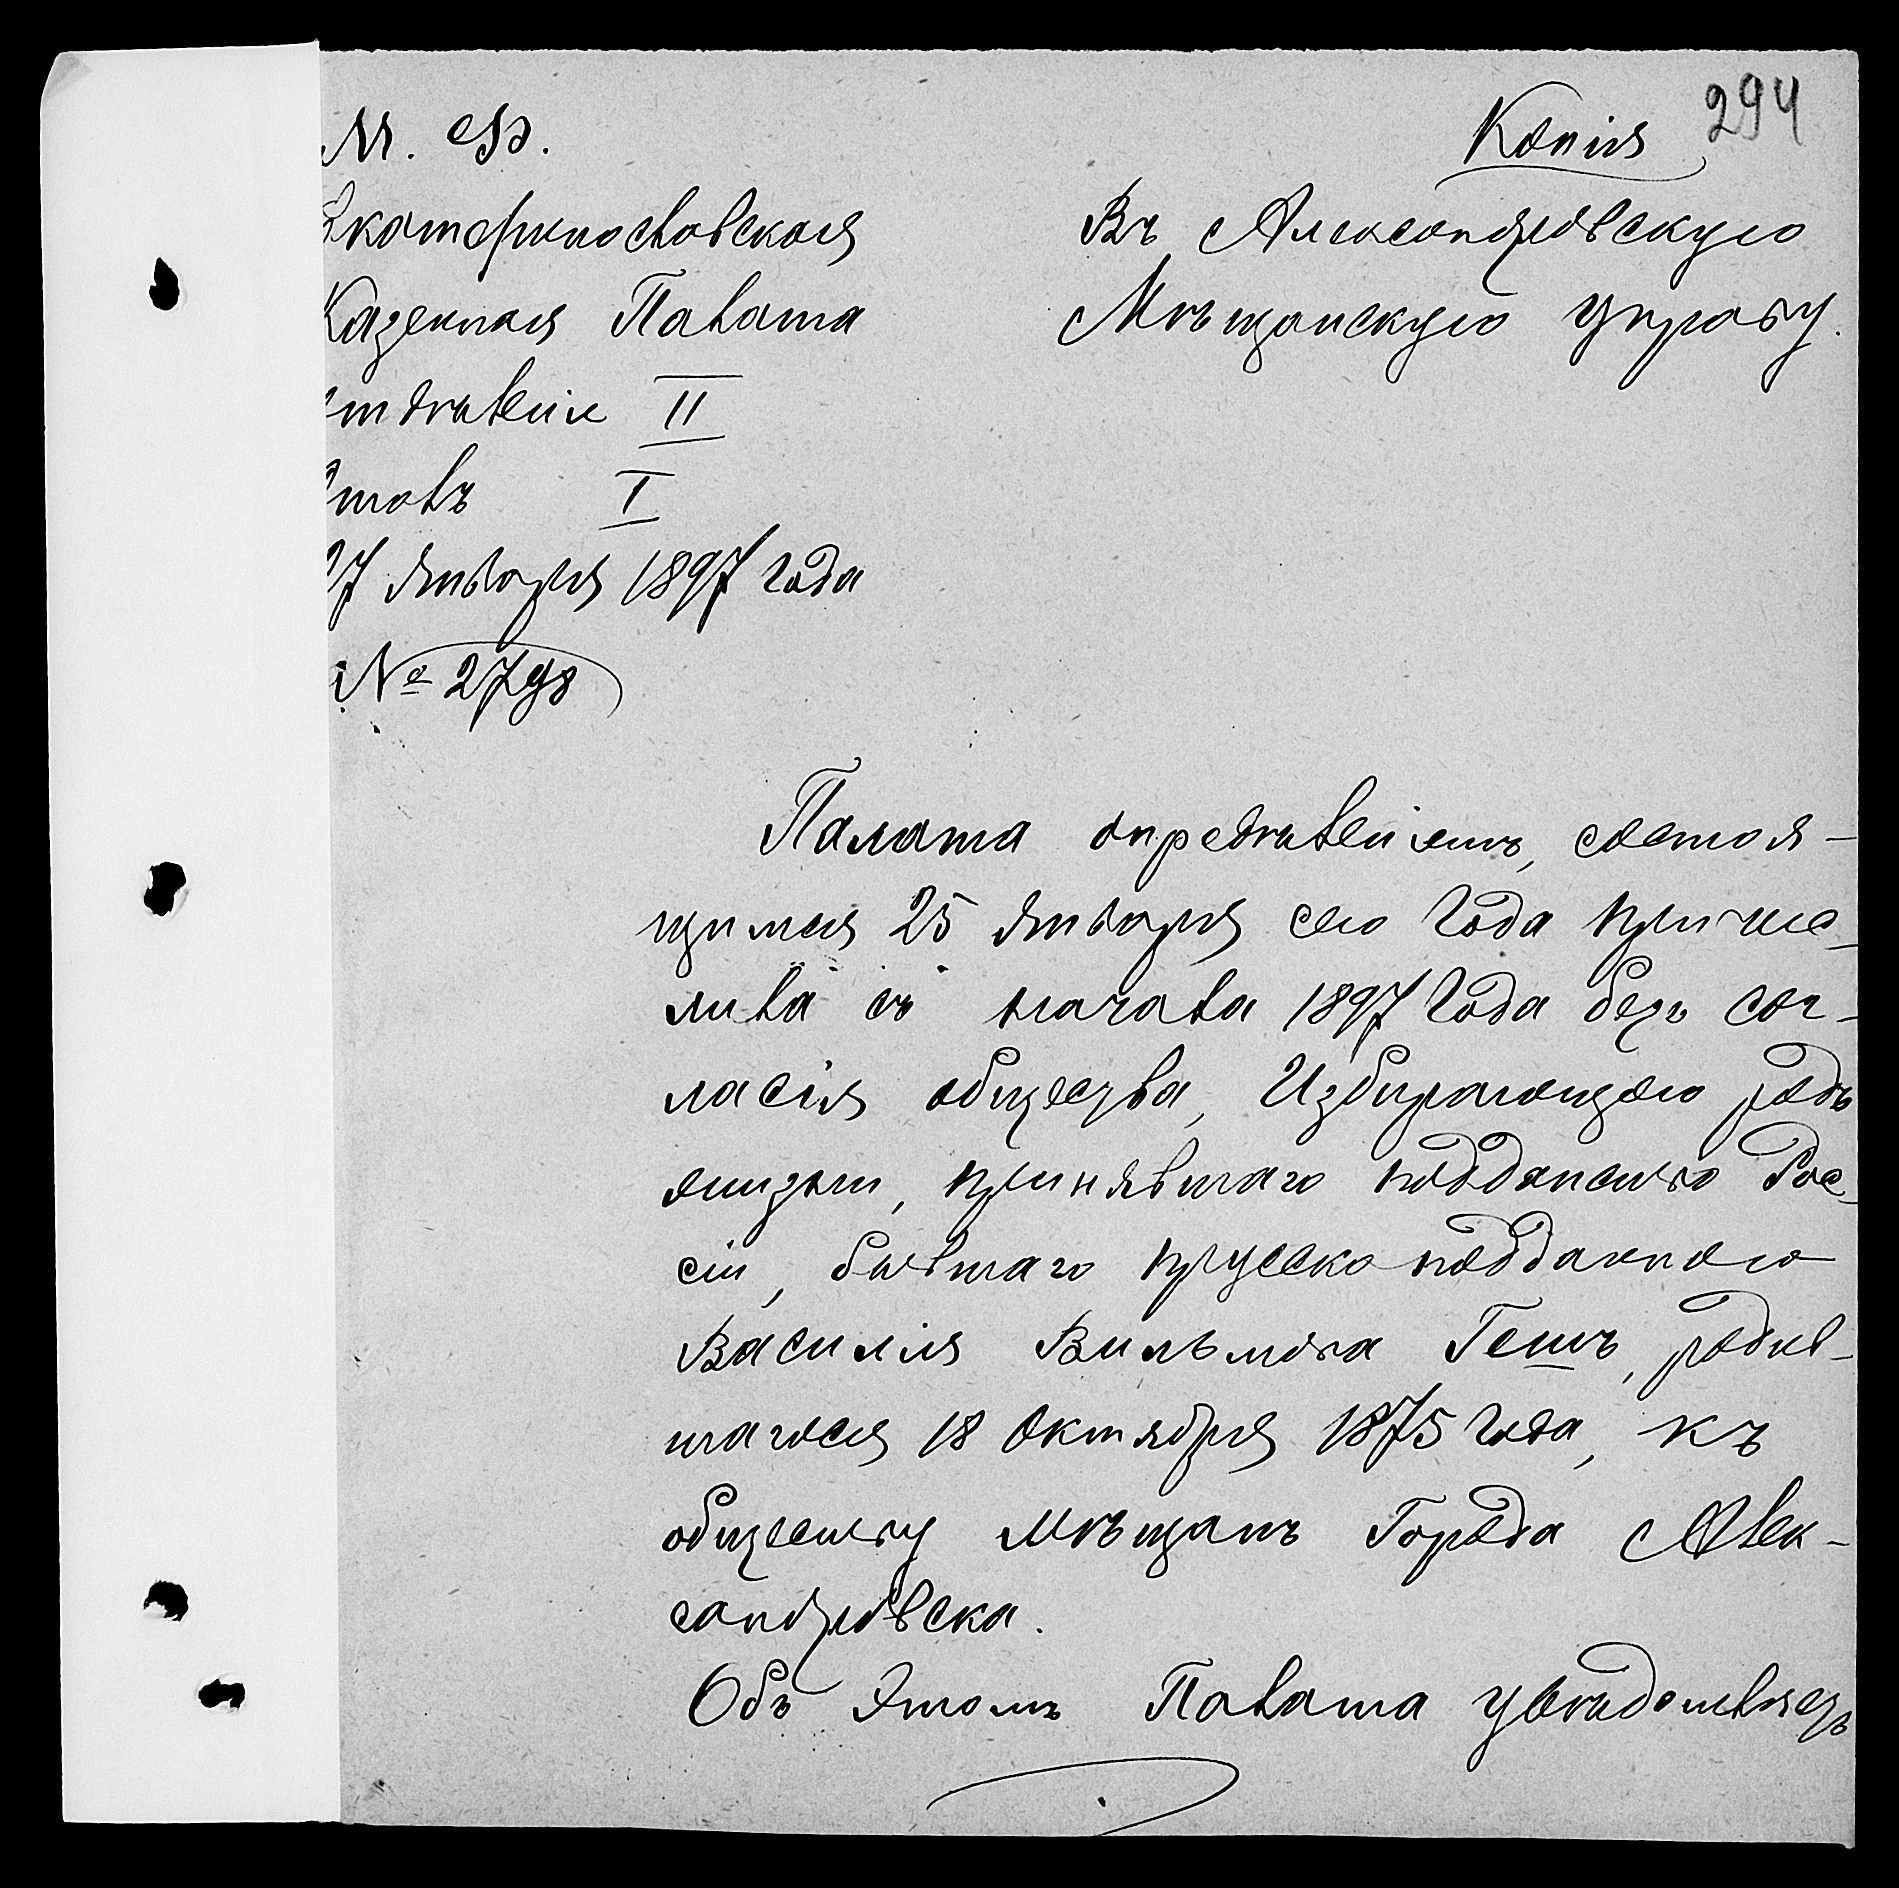 294
Копія
М. Ф.
Екатеринославская
Казенная Палата
Отдѣленіе II
Столъ I
27 Января 1897 года
№ 2798
Въ Александровскую
Мѣщанскую Управу.
Палата опредѣленіемъ, состоя-
щимся 25 Января сего года причис-
лила съ начала 1897 года безъ сог-
ласія общества, Избирающаго родъ
жизни, принявшаго подданство Рос-
сіи, бывшаго прусско-подданнаго
Василія Вильмова Гешъ, родив-
шагося 18 Октября 1875 года, къ
обществу мѣщанъ Города Алек-
сандровска.
Объ этомъ Палата увѣдомляетъ